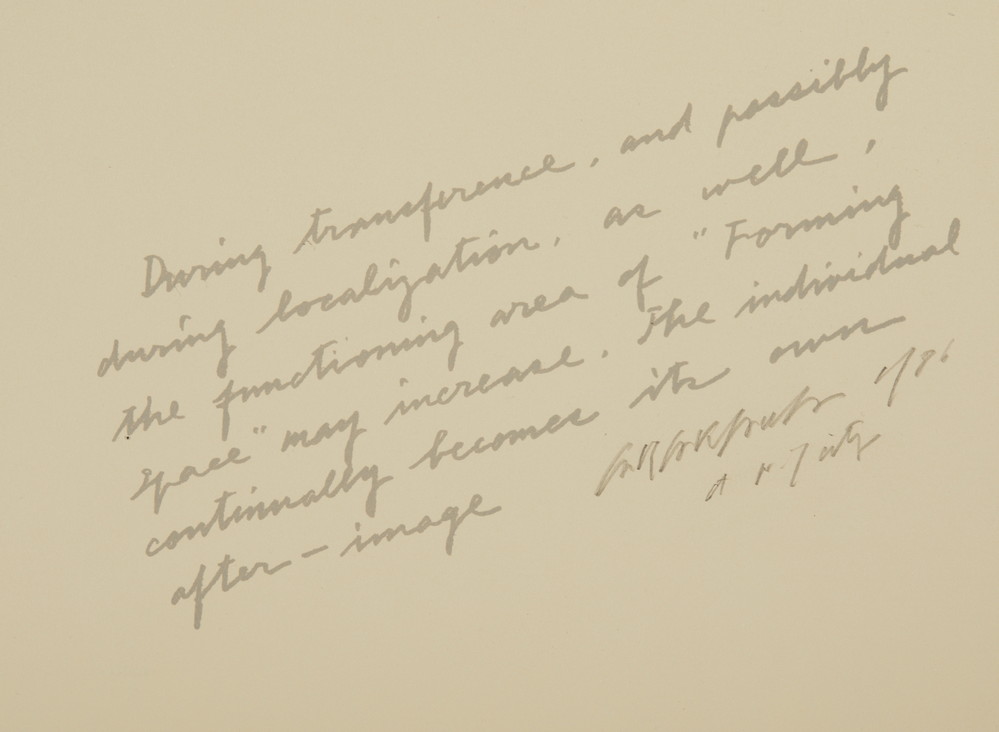 During transference, and possibly
during localization, as well,
the functioning area of "Forming
Space" may increase. The individual
continually becomes its own
after-image
'86
N.Y. city